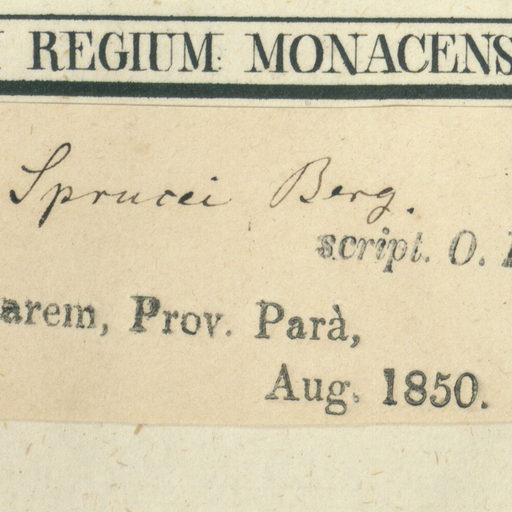 REGIUM MONACENS
Sprucei Berg.
script. O.
arem, Prov. Parà,
Aug. 1850.